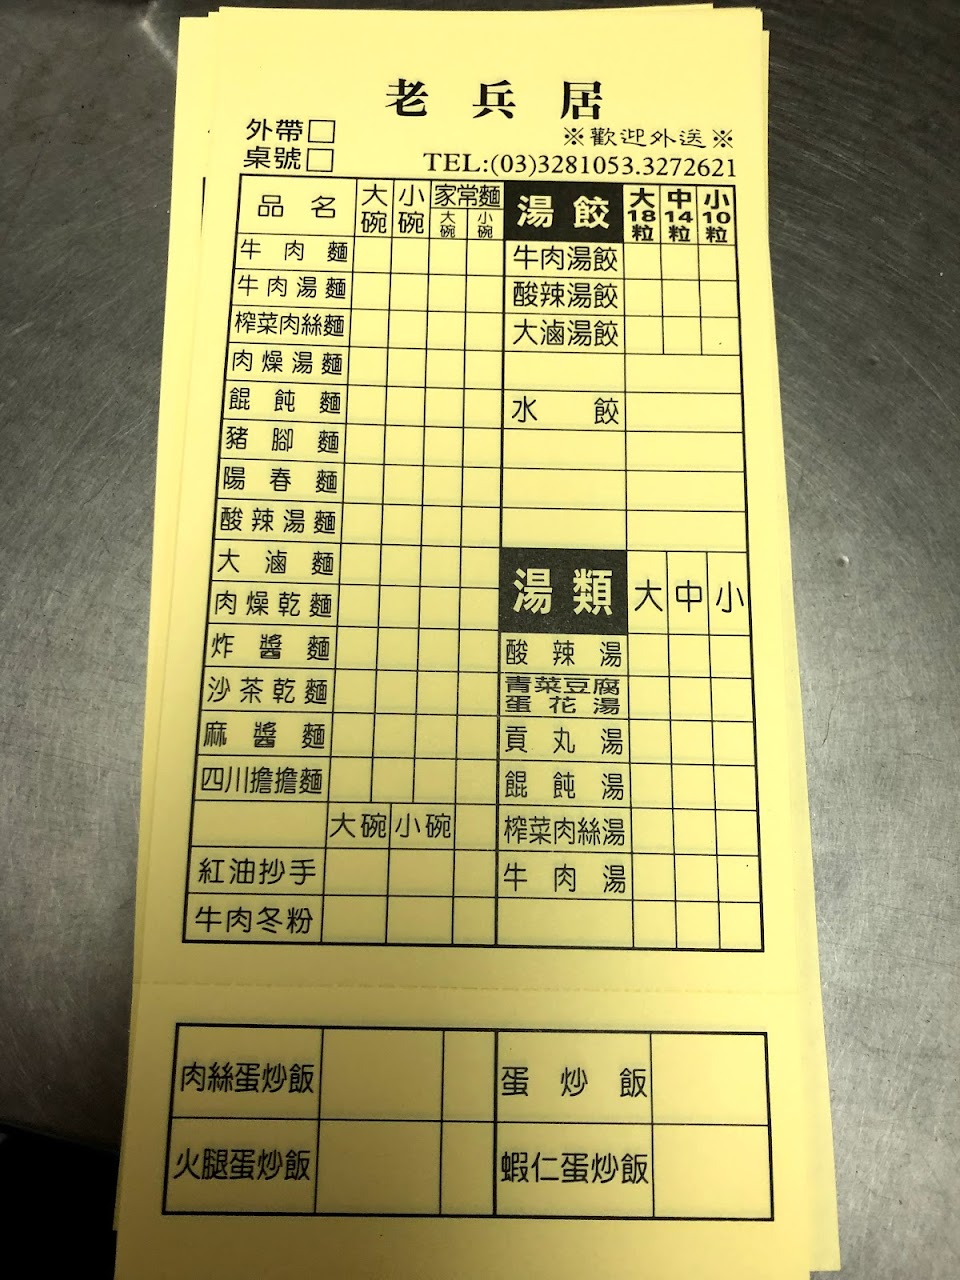 老兵居
外帶□
※歡迎外送※
桌號□
TEL:(03)3281053.3272621
品名 大碗 小碗 家常麵 大碗 小碗
牛肉麵
牛肉湯麵
榨菜肉絲麵
肉燥湯麵
餛飩麵
豬腳麵
陽春麵
酸辣湯麵
大滷麵
肉燥乾麵
炸醬麵
沙茶乾麵
麻醬麵
四川擔擔麵
大碗 小碗
紅油抄手
牛肉冬粉
湯餃 大18粒 中14粒 小10粒
牛肉湯餃
酸辣湯餃
大滷湯餃
水餃
湯類 大 中 小
酸辣湯
青菜豆腐
蛋花湯
貢丸湯
餛飩湯
榨菜肉絲湯
牛肉湯
肉絲蛋炒飯 蛋炒飯
火腿蛋炒飯 蝦仁蛋炒飯